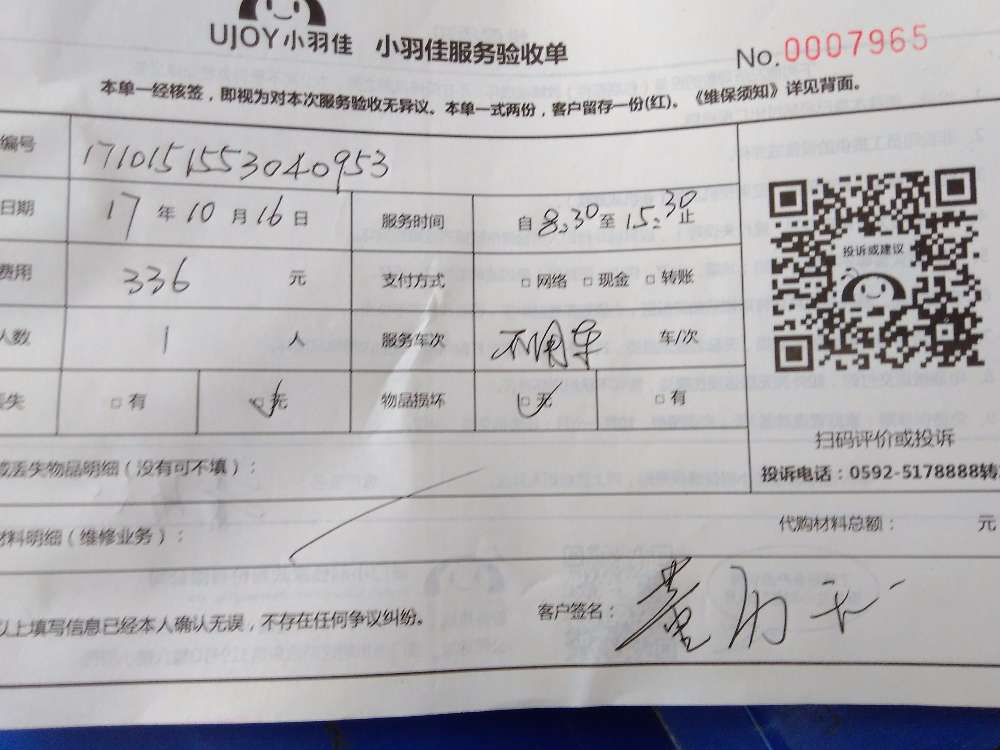 UJOY小羽佳 小羽佳服务验收单 No.0007965
本单一经核签，即视为对本次服务验收无异议。本单一式两份，客户留存一份(红)。《维保须知》详见背面。
编号 1710151553040953
日期 17 年 10 月 16 日 服务时间 自 8:30 至 15:30 止
费用 336 元 支付方式 □ 网络 □ 现金 □ 转账
人数 1 人 服务车次 不用车 车/次
丢失 □ 有 □ 无 物品损坏 □ 无 □ 有
投诉或建议
扫码评价或投诉
投诉电话：0592-5178888转
或丢失物品明细（没有可不填）：
材料明细（维修业务）： 代购材料总额： 元
以上填写信息已经本人确认无误，不存在任何争议纠纷。 客户签名：